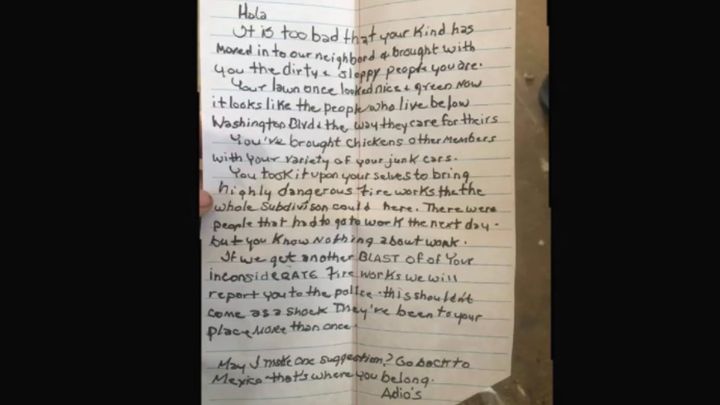 Hola
It is too bad that your kind has
moved in to our neighbord & brought with
you the dirty & sloppy people you are.
Your lawn once looked nice & green now
it looks like the people who live below
Washington Blvd & the way they care for theirs
You've brought chickens other members
with your variety of your junk cars.
You took it upon your selves to bring
highly dangerous fireworks the the
whole subdivison could here. There were
people that had to go to work the next day -
but you know nothing about work.
If we get another BLAST of of your
inconsiderate fireworks we will
report you to the police - this shouldn't
come as a shock they've been to your
place more than once.
May I make one suggestion? Go back to
Mexico that's where you belong.
Adio's